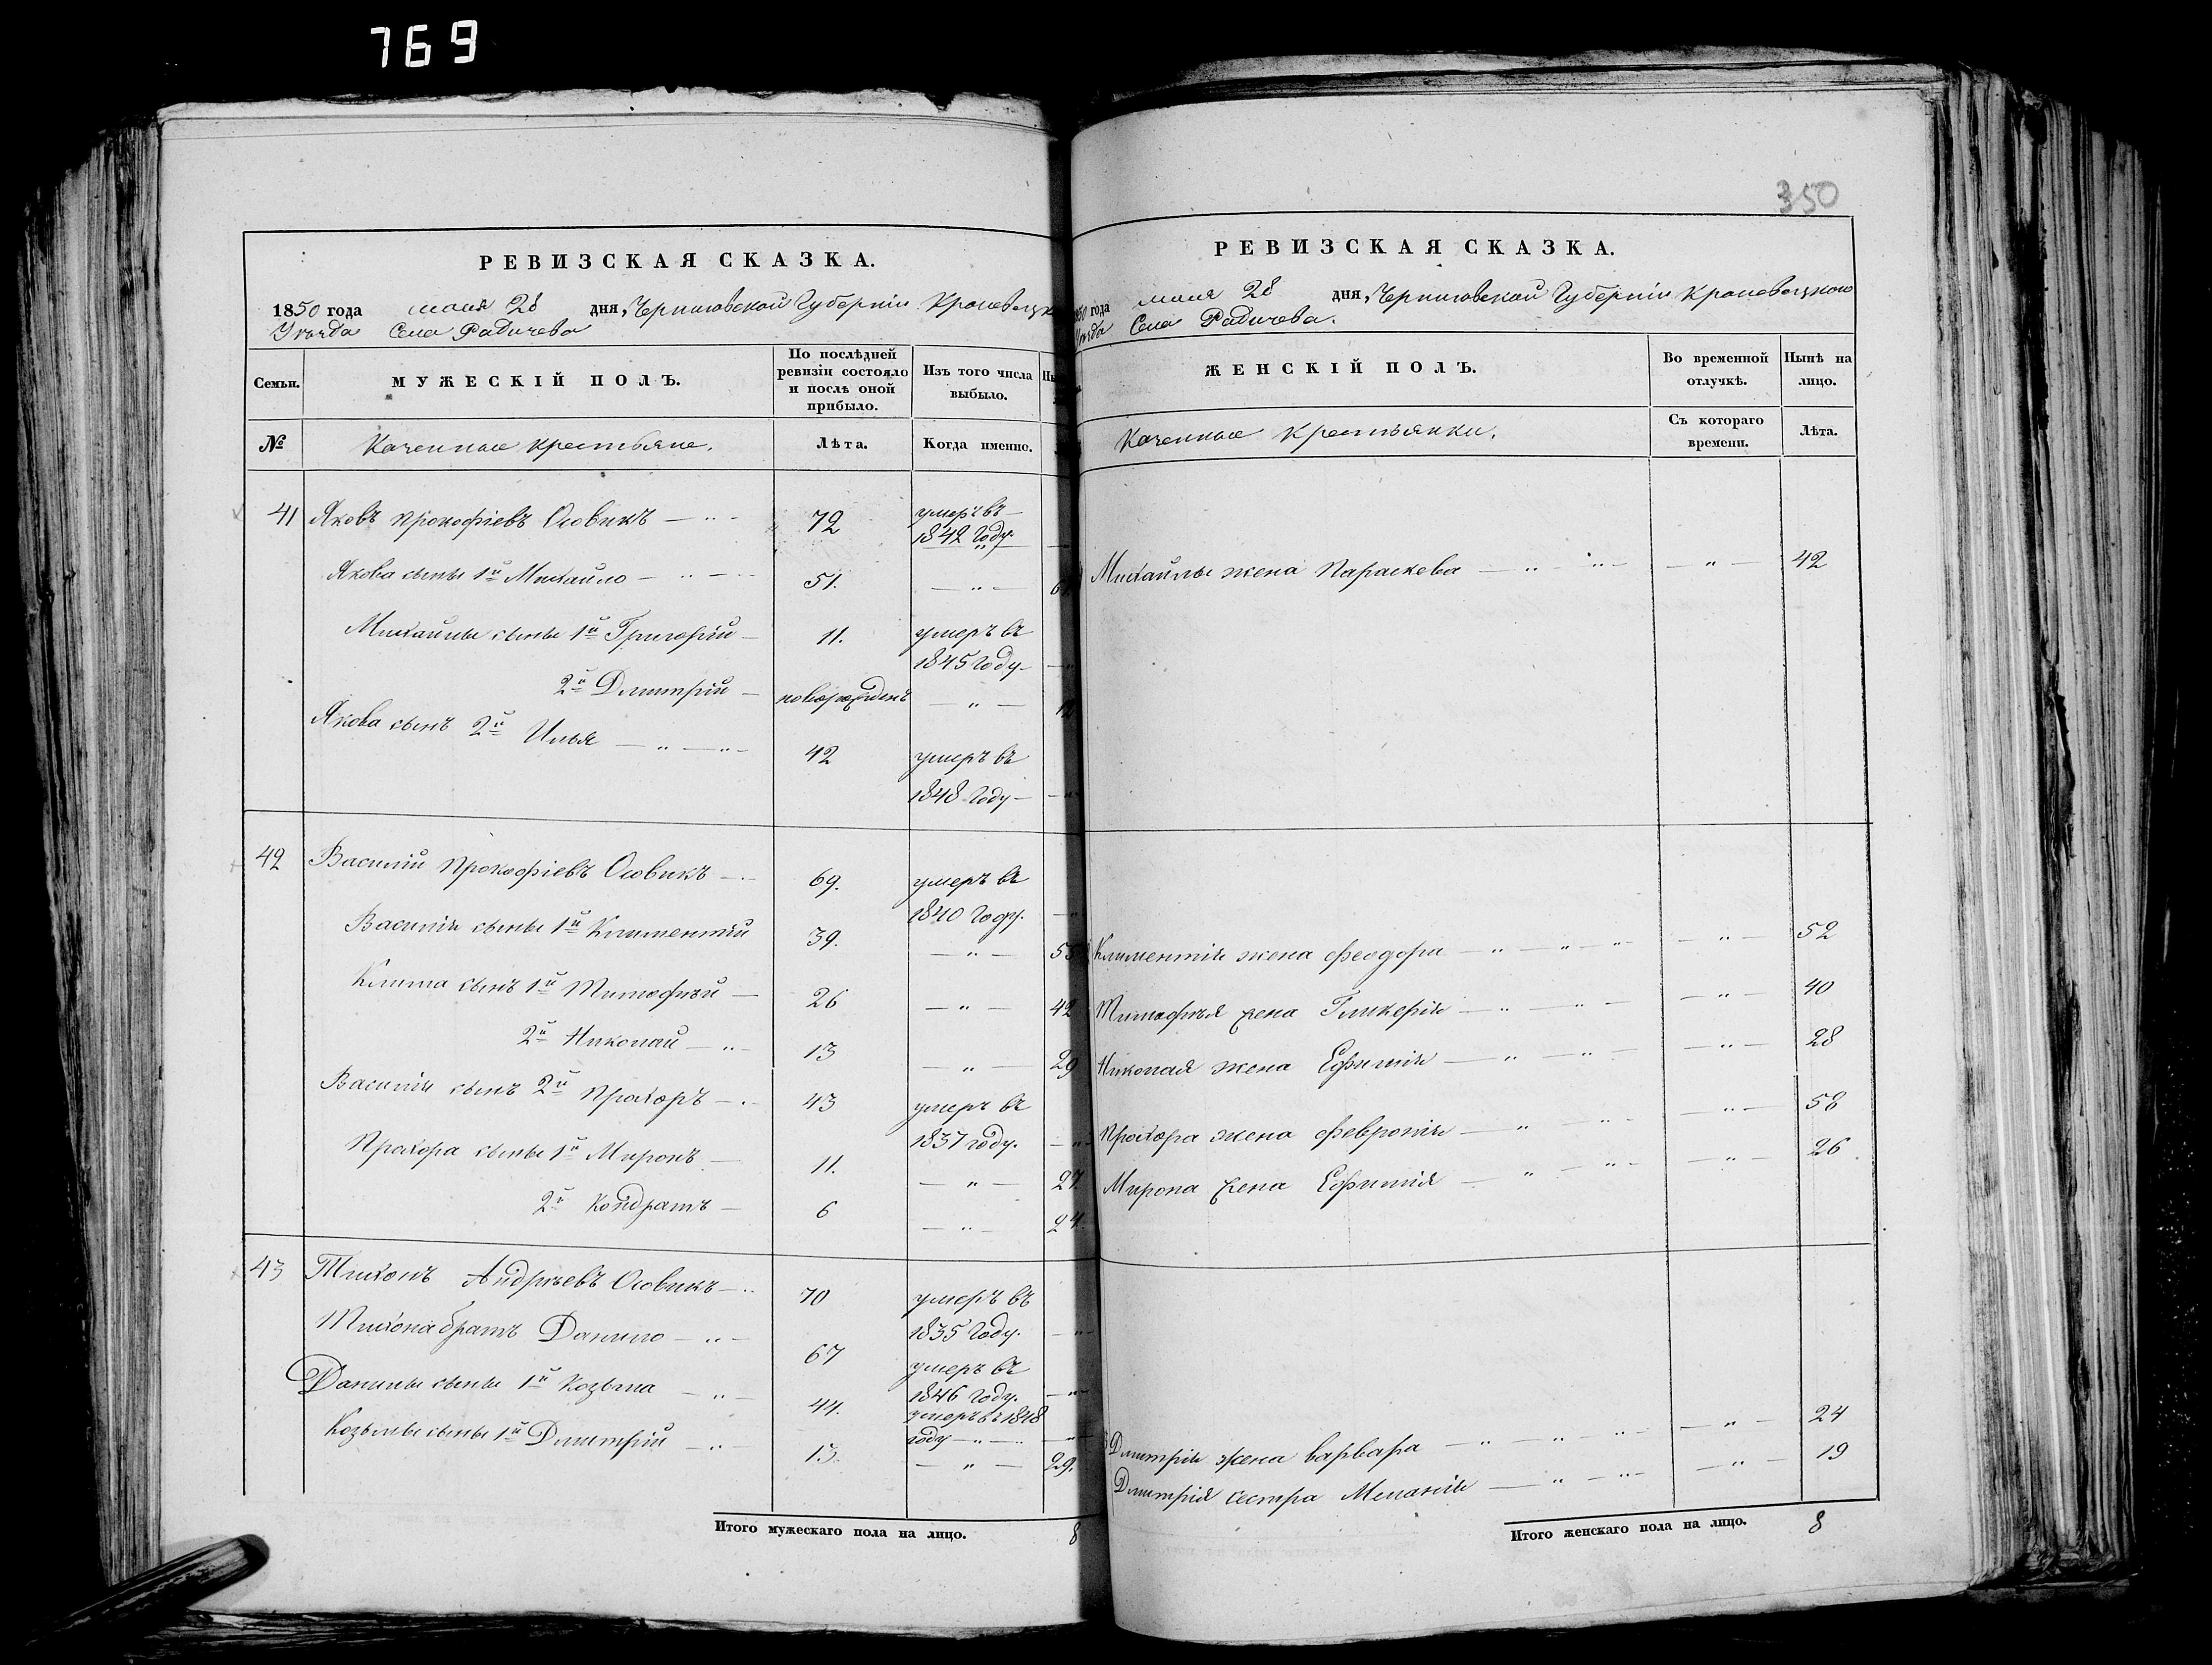 769
350
РЕВИЗСКАЯ СКАЗКА.
1850 года маия 28 дня, Черниговской Губерніи Кролевецк
Уѣзда Села Радичева
Семьи.
МУЖЕСКІЙ ПОЛЪ.
По послѣдней
ревизіи состояло
и послѣ оной
прибыло.
Изъ того числа
выбыло.
№
Казенные крестьяне.
Лѣта.
Когда именно.
41 Яковъ Прокофіевъ Осовикъ 72 умеръ въ
1842 году.
Якова сыны 1й Михайло 51.
Михайлы сыны 1й Григорій 11. умеръ въ
1845 году
2й Дмитрій новорожденъ
Якова сынъ 2й Илья 42 умеръ въ
1848 году
42 Василій Прокофіевъ Осовикъ 69. умеръ въ
1840 году.
Василія сыны 1й Климентій 39.
Клима сынъ 1й Тимофѣй 26 42
2й Николай 13 29
Василія сынъ 2й Прохоръ 43 умеръ въ
1837 году.
Прохора сыны 1й Миронъ 11. 27.
2й Кондратъ 6 24.
43 Тихонъ Андрѣевъ Осовикъ 70 умеръ въ
1835 году.
Тихона братъ Данило 67 умеръ въ
1846 году.
Данилы сыны 1й Козьма 44. умеръ въ 1848
году
Козьмы сыны 1й Дмитрій 13. 29.
Итого мужескаго пола на лицо. 8
РЕВИЗСКАЯ СКАЗКА.
года маия 28 дня, Черниговской Губерніи Кролевецкого
Уѣзда Села Радичева.
ЖЕНСКІЙ ПОЛЪ.
Во временной
отлучкѣ.
Нынѣ на
лицо.
Казенные Крестьянки.
Съ котораго
времени.
Лѣта.
Михайлы жена Параскева 42
Климентія жена Феодора 52
Тимофѣя жена Гликерія 40
Николая жена Ефимія 28
Прохора жена Февронія 58
Мирона жена Ефимія 26
Дмитрія жена Варвара 24
Дмитрія сестра Меланія 19
Итого женскаго пола на лицо. 8